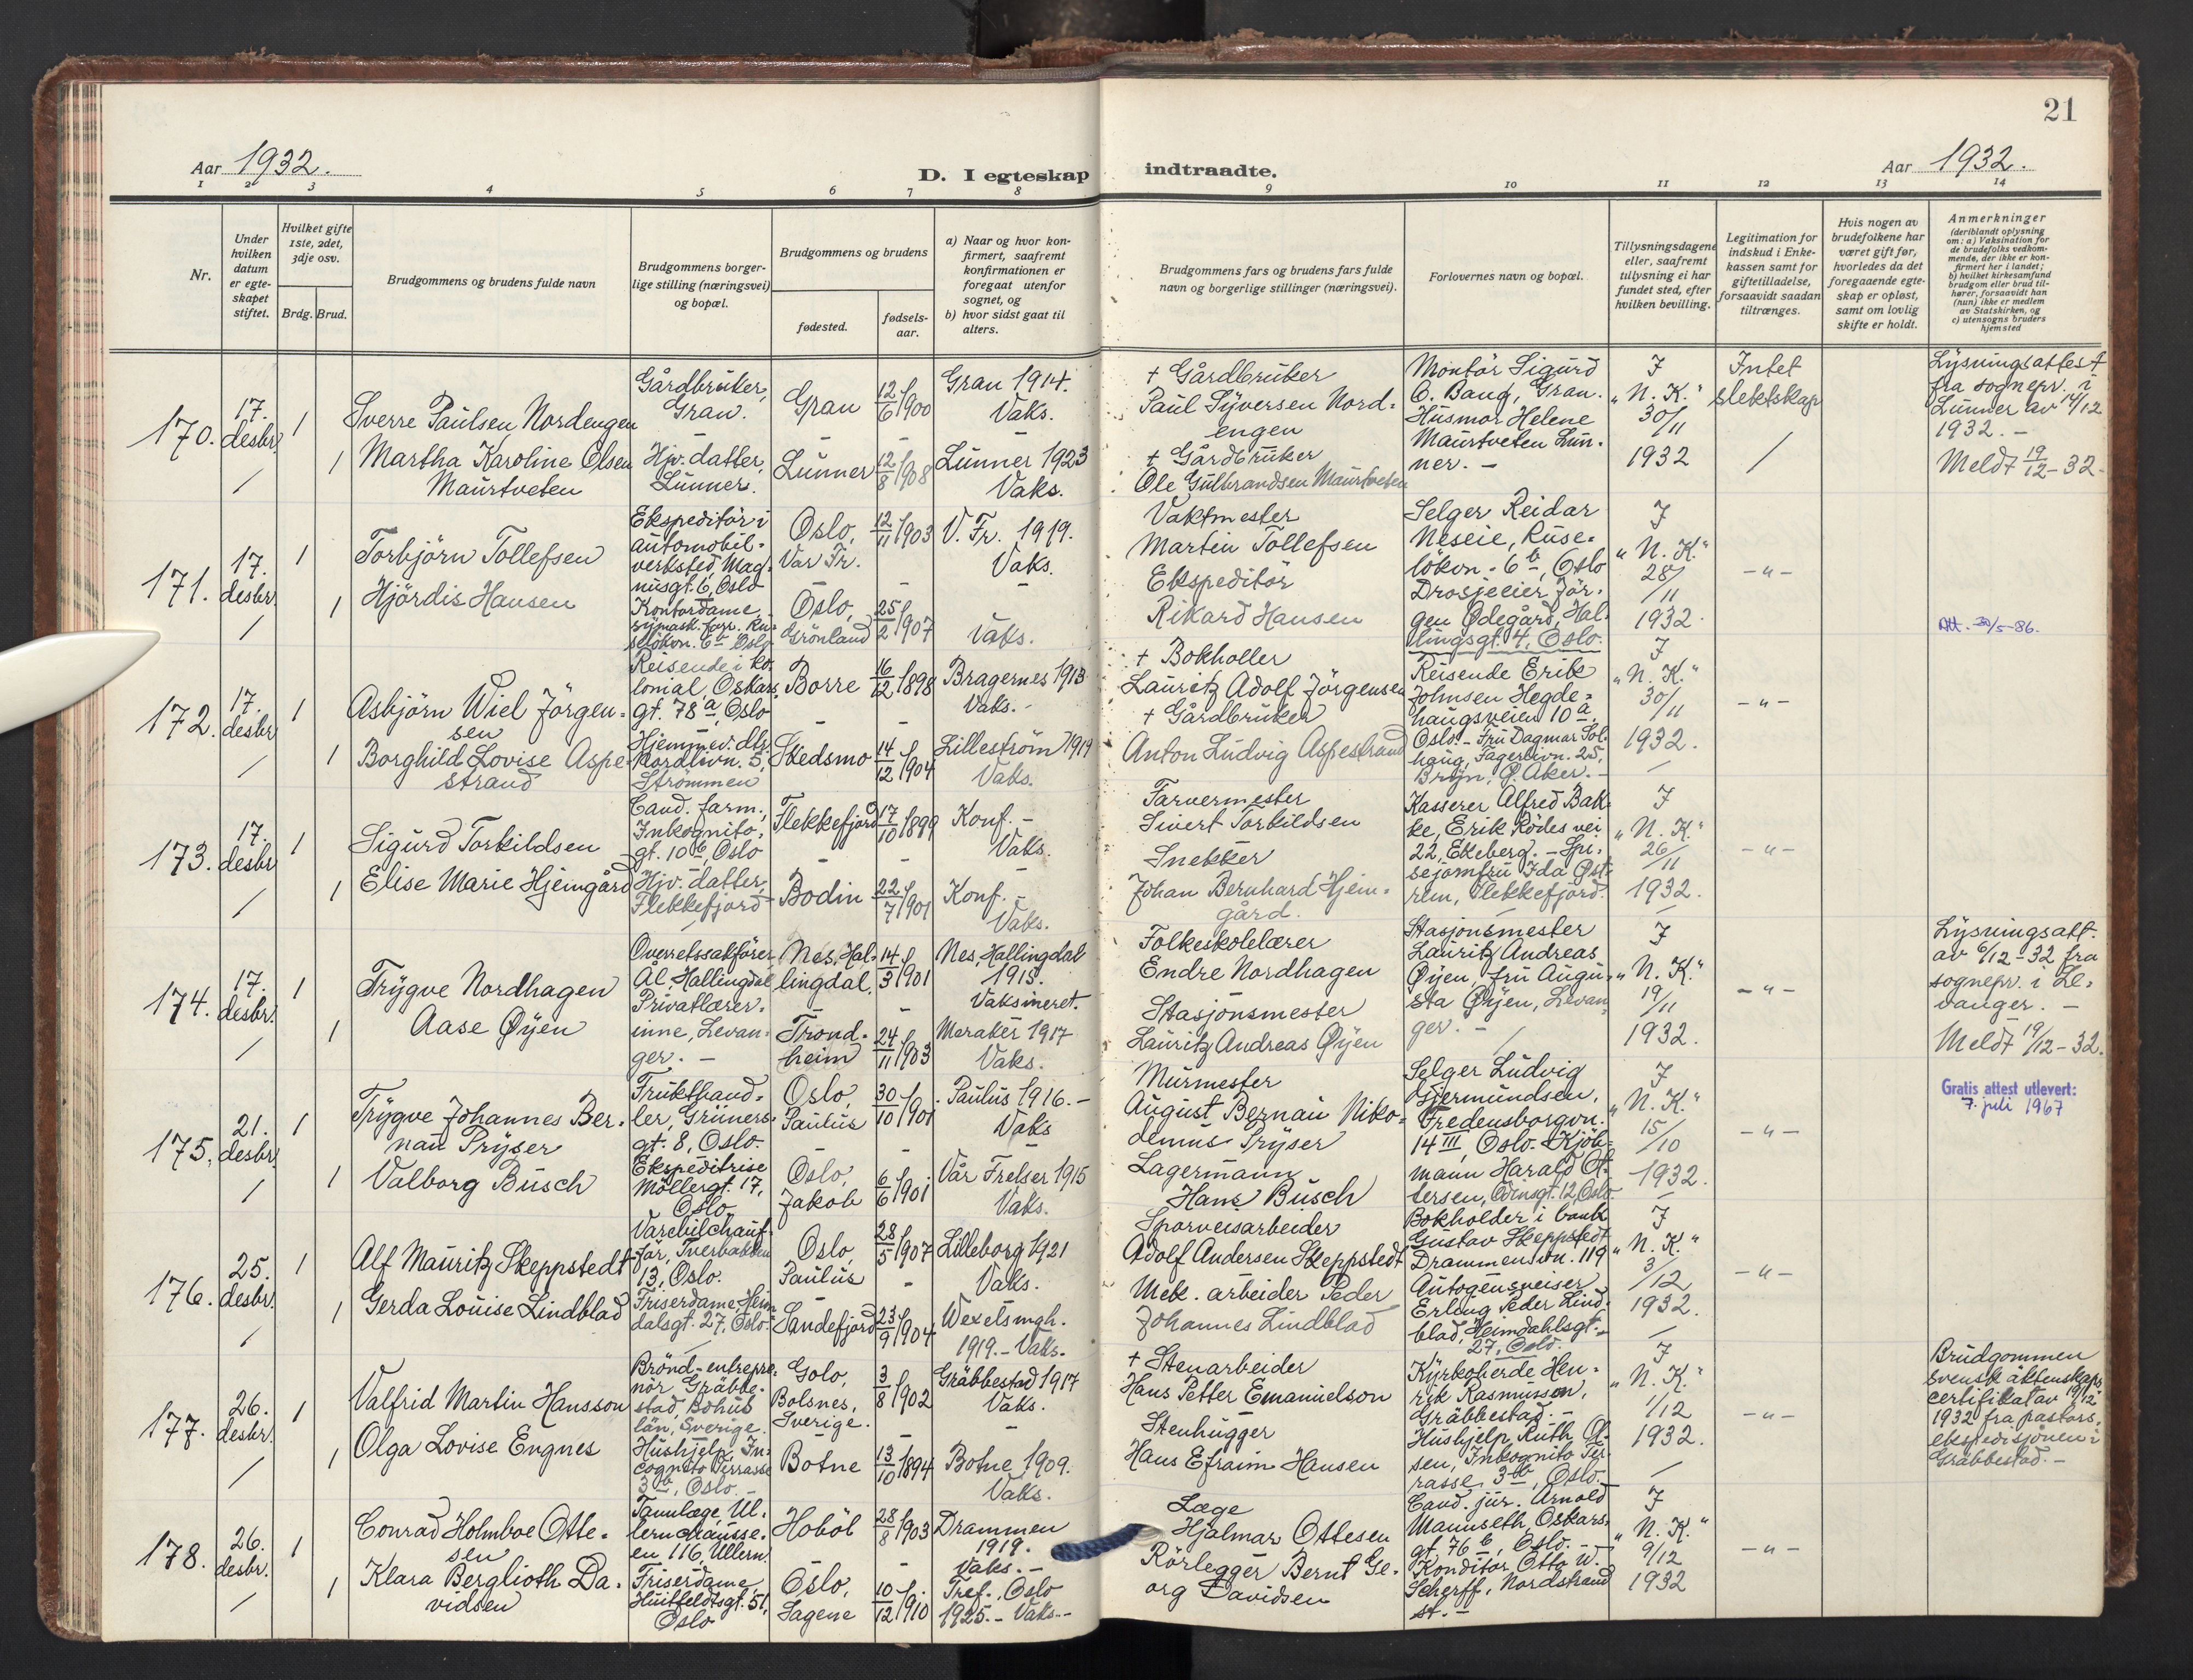 21
Aar 1932.
D. I egteskap indtraadte.
Aar 1932.
1 2 3 4 5 6 7 8 9 10 11 12 13 14
Nr.
Under hvilken datum er egteskapet stiftet.
Hvilket gifte 1ste, 2det, 3dje osv.
Brdg. Brud.
Brudgommens og brudens fulde navn
Brudgommens borgerlige stilling (næringsvei) og bopæl.
Brudgommens og brudens
fødested.
fødselsaar.
a) Naar og hvor konfirmert, saafremt konfirmationen er foregaat utenfor sognet, og
b) hvor sidst gaat til alters.
Brudgommens fars og brudens fars fulde navn og borgerlige stillinger (næringsvei).
Forlovernes navn og bopæl.
Tillysningsdagene eller, saafremt tillysning ei har fundet sted, efter hvilken bevilling.
Legitimation for indskud i Enkekassen samt for giftetilladelse, forsaavidt saadan tiltrænges.
Hvis nogen av brudefolkene har været gift før, hvorledes da det foregaaende egteskap er opløst, samt om lovlig skifte er holdt.
Anmerkninger
(deriblandt oplysning om: a) Vaksination for de brudefolks vedkommende, der ikke er konfirmert her i landet;
b) hvilket kirkesamfund brudgom eller brud tilhører, forsaavidt han (hun) ikke er medlem av Statskirken, og
c) utensogns bruders hjemsted
170. 17. desbr. 1
Sverre Paulsen Nordengen
Gårdbruker, Gran.
Gran 12/6 f. 1900
Gran 1914. Vaks.
+ Gårdbruker Paul Syversen Nordengen
Montör Sigurd C. Bang, Gran. Husmor Helene Maurtveten Lunner. -
I "N. K." 30/11 1932
Intet slektskap
Lysningsattest fra sognepr. i Lunner av 14/12 1932. -
Meldt 19/12-32.
1 Martha Karoline Olsen Maurtveten
Hjv. datter, Lunner.
Lunner 12/8 f. 1908
Lunner 1923 Vaks.
+ Gårdbruker Ole Gulbrandsen Maurtveten
171. 17. desbr. 1
Torbjörn Tollefsen
Ekspeditör i automobilverksted, Magnusgt. 6, Oslo
Oslo, Vår Fr. 12/11 f. 1903
V. Fr. 1919. Vaks.
Vaktmester Martin Tollefsen
Selger Reidar Neseie, Ruselökvn. 6 b, Oslo
Drosjeeier Jörgen Ødegård, Hallingsgt. 4, Oslo.
I "N. K." 28/11 1932.
-"-
Att. 30/5-86.
1 Hjördis Hansen
Kontordame
Oslo, Grönland 25/2 f. 1907
Vaks.
Ekspeditör Rikard Hansen
172. 17. desbr. 1
Asbjörn Wiel Jörgensen
Reisende i kolonial, Oskarsgt. 78 a, Oslo
Borre 16/12 f. 1898
Bragernes 1913 Vaks. -
+ Bokholler Lauritz Adolf Jörgensen
Reisende Erik Johnsen Hegdehaugsveien 10 a, Oslo. - Fru Dagmar Solhaug, Fagerlivn. 25, Bryn, Ø. Aker. -
I "N. K." 30/11 1932.
-"-
1 Borghild Lovise Aspestrand
Hjemmev. dtr. Nordlivn. 5, Strömmen
Skedsmo 14/12 f. 1904
Lilleström 1919 Vaks.
+ Gårdbruker Anton Ludvig Aspestrand
173. 17. desbr. 1
Sigurd Torkildsen
Cand. farm., Inkognitogt. 10 b, Oslo
Flekkefjord 17/10 f. 1899
Konf. - Vaks.
Farvermester Sivert Torkildsen
Kasserer Alfred Bakke, Erik Rödes vei 22, Ekeberg. -
I "N. K." 26/11 1932.
-"-
1 Elise Marie Hjemgård
Hjv. datter, Flekkefjord
Bodin 22/7 f. 1901
Konf. - Vaks.
Snekker Johan Bernhard Hjemgård.
174. 17. desbr. 1
Trygve Nordhagen
Overretssakförer Ål, Hallingdal
Nes, Hallingdal. 14/3 f. 1901
Nes, Hallingdal 1915. Vaksineret.
Folkeskolelærer Endre Nordhagen
Stasjonsmester Lauritz Andreas Øyen, fru Augusta Øyen, Levanger. -
I "N. K." 19/11 1932.
-"-
Lysningsatt. av 6/12-32 fra sognepr. i Levanger. -
Meldt 19/12-32.
1 Aase Øyen
Privatlærerinne, Levanger. -
Trondheim 24/11 f. 1903
Meraker 1917 Vaks.
Stasjonsmester Lauritz Andreas Øyen
175. 21. desbr. 1
Trygve Johannes Bernau Pryser
Frukthandler, Grünersgt. 8, Oslo.
Oslo, Paulus 30/10 f. 1901
Paulus 1916. - Vaks
Murmester August Bernau Nikodemus Pryser
Selger Ludvig Gjermundsen, Fredensborgvn. 14 III, Oslo. - Kjöbmann Harald Ottersen, Odinsgt. 12, Oslo.
I "N. K." 15/10 1932.
-"-
Gratis attest utlevert:
7. juli 1967
1 Valborg Busch
Ekspeditrise Möllergt. 17, Oslo
Oslo, Jakob 6/6 f. 1901
Vår Frelser 1915 Vaks.
Lagermann Hans Busch
176. 25. desbr. 1
Alf Mauritz Skeppstedt
Varebilchauför, Tverbakken 13, Oslo.
Oslo Paulus 28/5 f. 1907
Lilleborg 1921 Vaks.
Sporveisarbeider Adolf Andersen Skeppstedt
Bokholder i bank Gustav Skeppstedt Drammensvn. 119
Autogensveiser Erling Peder Lindblad, Heimdahlsgt. 27, Oslo.
I "N. K." 3/12 1932.
-"-
1 Gerda Louise Lindblad
Friserdame, Heimdalsgt. 27, Oslo.
Sandefjord 23/9 f. 1904
Wexelsmgh. 1919. - Vaks.
Mek. arbeider Peder Johannes Lindblad
177. 26. desbr. 1
Valfrid Martin Hansson
Brönd-entreprenör Gräbbestad, Bohus län, Sverige.
Golo, Bolsnes, Sverige. 3/8 f. 1902
Gräbbestad 1917 Vaks.
+ Stenarbeider Hans Petter Emanuelson
Kyrkoherde Henrik Rasmusson, Gräbbestad. - Hushjelp Ruth Olsen, Inkognito Terrasse 3 b, Oslo.
I "N. K." 1/12 1932.
-"-
Brudgommen svensk äktenskapscertifikat av 19/12 1932 fra pastorsekspedisjonen i Gräbbestad. -
1 Olga Lovise Engnes
Hushjelp Incognito Terrasse 3 b, Oslo. -
Botne 13/10 f. 1894
Botne 1909. Vaks.
Stenhugger Hans Efraim Hansen
178. 26. desbr. 1
Conrad Holmboe Ottesen
Tannlæge, Ullernchausseen 116, Ullern.
Hobøl 28/8 f. 1903
Drammen 1919. Vaks. -
Læge Hjalmar Ottesen
Cand. jur. Arnold Mannseth, Oskarsgt. 76 b, Oslo. - Konditor Otto W. Scherff, Nordstrand st. -
I "N. K." 9/12 1932
-"-
1 Klara Berglioth Davidsen
Friserdame Huitfeldtsgt. 51, Oslo
Oslo, Sagene 10/12 f. 1910
Tref., Oslo 1925. - Vaks. -
Rörlegger Bernt Georg Davidsen